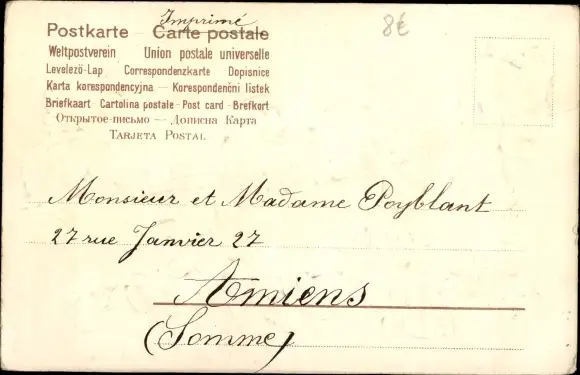 Imprimé
Postkarte - Carte postale
Weltpostverein - Union postale universelle
Levelezö-Lap Correspondenzkarte Dopisnice
Karta korespondencyjna — Korespondenční lístek
Briefkaart - Cartolina postale - Post card - Brefkort
Открытое-письмо — Дописна Карта
Tarjeta Postal
8€
Monsieur et Madame Poyblant
27 rue Janvier 27
Amiens
(Somme)